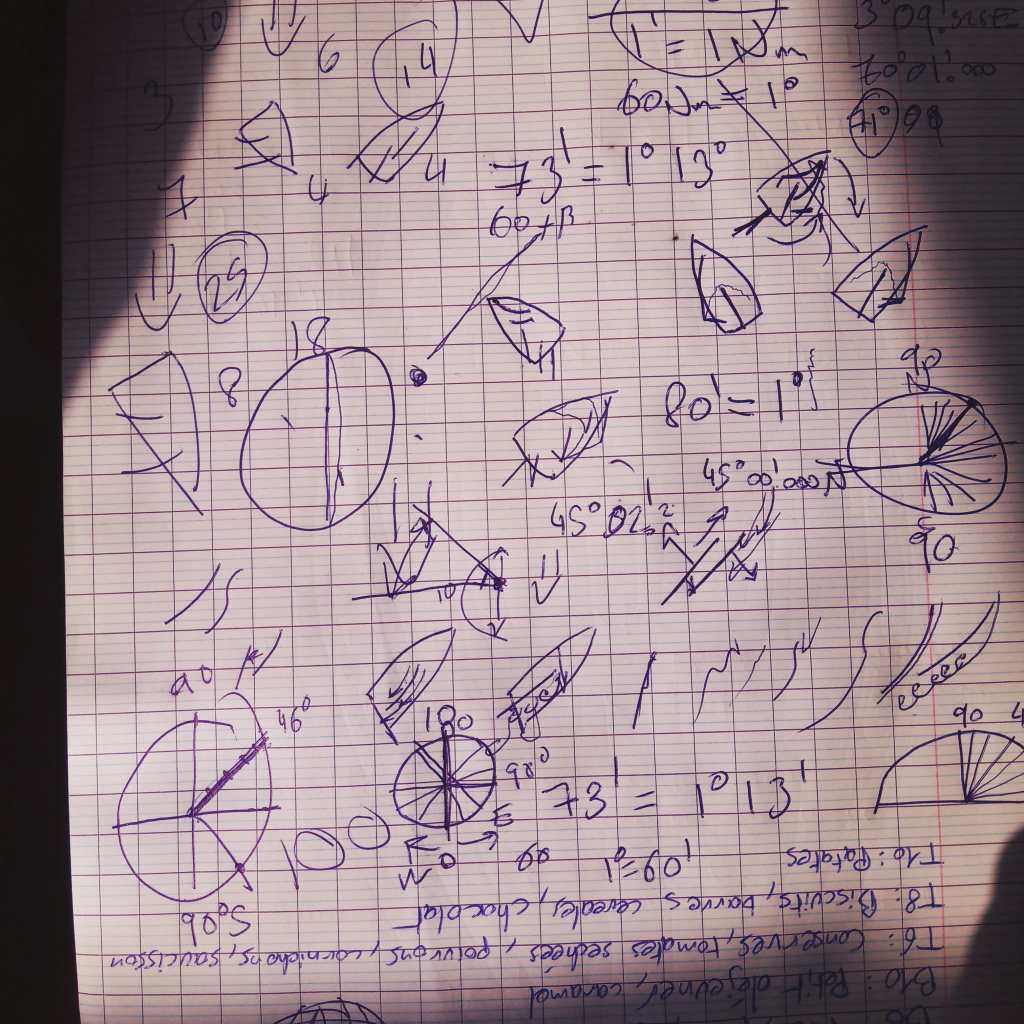 10
6
14
3
4
4
7
1' = 1 Nm
60 Nm = 1°
3°09'
70°01'.000
71°
73' = 1° 13°
25
18
8
80' = 1°
90
N
45°00'.000N
45°02'.2
90
10
90
46°
180
98°
73' = 1° 13'
90
E
W
0
99
100
1° = 60'
90°S
T10: Patates
T8: Biscuits, barres cereales, chocolat
T6: Conserves, tomates sechées, poivrons, cornichons, saucisson
B10: Petit déjeuner, caramel